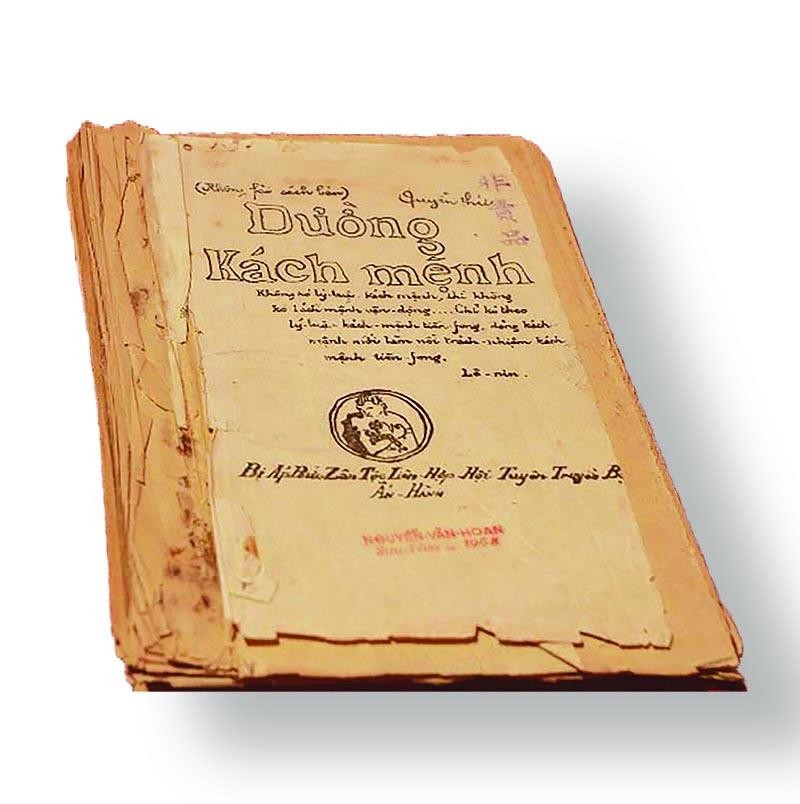 (Không fải sách bán) Quyển thứ
非賣品
Đường
Kách mệnh
Không có lý-luận kách mệnh, thì không
có kách mệnh vận-động.... Chỉ có theo
lý-luận kách-mệnh tiền-fong, đảng kách
mệnh mới làm nổi trách-nhiệm kách
mệnh tiền-fong.
Lê-nin.
Bị Áp Bức Zân Tộc Liên-Hợp Hội Tuyên Truyền Bộ
Ấn-Hành
NGUYỄN-VĂN-HOAN
SƯU-TẦM 1958